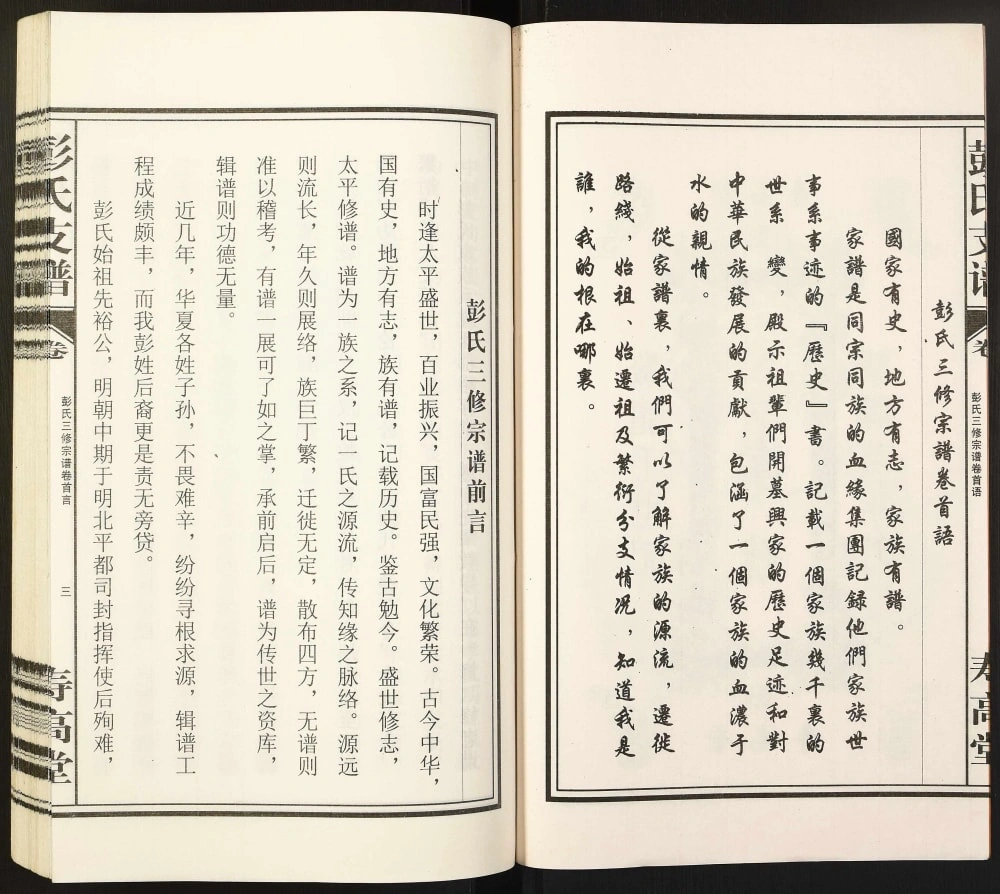 彭氏支谱
卷
彭氏三修宗谱卷首语
寿高堂
彭氏三修宗譜卷首語
國家有史，地方有志，家族有譜。
家譜是同宗同族的血緣集團記録他們家族世
事系事迹的『歷史』書。記載一個家族幾千裏的
世系　變，殿示祖輩們開墓興家的歷史足迹和對
中華民族發展的貢獻，包涵了一個家族的血濃于
水的親情。
從家譜裏，我們可以了解家族的源流，遷徙
路綫，始祖、始遷祖及繁衍分支情况，知道我是
誰，我的根在哪裏。
彭氏三修宗谱前言
时逢太平盛世，百业振兴，国富民强，文化繁荣。古今中华，
国有史，地方有志，族有谱，记载历史。鉴古勉今。盛世修志，
太平修谱。谱为一族之系，记一氏之源流，传知缘之脉络。源远
则流长，年久则展络，族巨丁繁，迁徙无定，散布四方，无谱则
准以稽考，有谱一展可了如之掌，承前启后，谱为传世之资库，
辑谱则功德无量。
近几年，华夏各姓子孙，不畏难辛，纷纷寻根求源，辑谱工
程成绩颇丰，而我彭姓后裔更是责无旁贷。
彭氏始祖先裕公，明朝中期于明北平都司封指挥使后殉难，
彭氏支谱
卷
彭氏三修宗谱卷首言
三
寿高堂